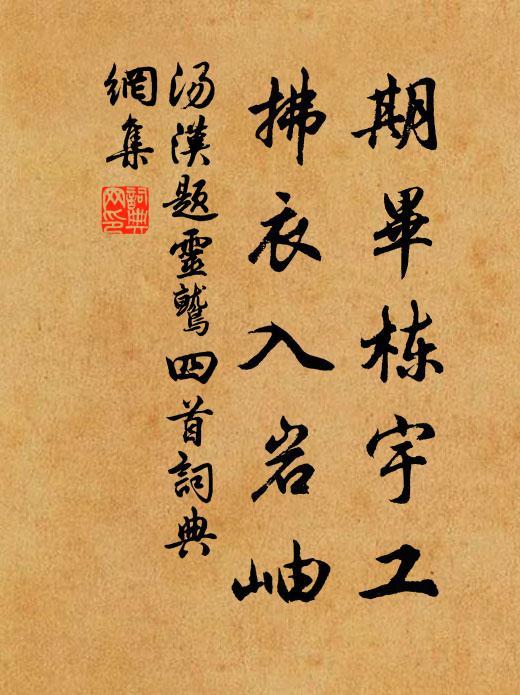 期畢栋宇工
拂衣入岩岫
汤漢题靈鷲四首詞典
網集
詞典
网印